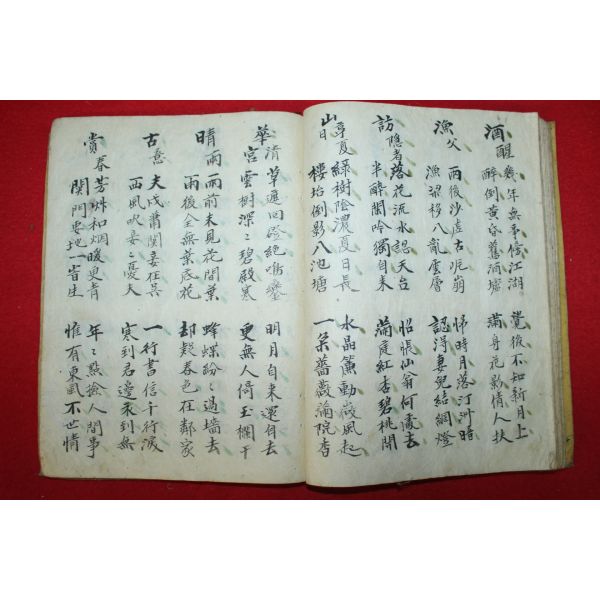 酒醒
幾年無事傍江湖
醉倒黃昏舊酒壚
覺後不知新月上
滿身花影情人扶
漁父
雨後沙虛古岸崩
漁梁移入亂雲層
歸時月落汀洲時
認得妻兒結網燈
訪隱者
落花流水認天台
半醉閑吟獨自來
怊悵仙翁何處去
滿庭紅李碧桃開
山亭夏日
綠樹陰濃夏日長
樓坮倒影入池塘
水晶簾動微風起
一朶薔薇滿院香
華清宮
草遮回磴絶鳴鑾
雲樹深〻碧殿寒
明月自來還自去
更無人倚玉欄干
晴雨
雨前未見花間葉
雨後全無葉底花
蜂蝶紛〻過墻去
却疑春色在鄰家
古意
夫戍蕭關妾在吳
西風吹妾〻憂夫
一行書信千行淚
寒到君邊衣到無
賞春
芳和烟暖更青
閑門更地一時生
年〻點撿人間事
惟有東風不世情